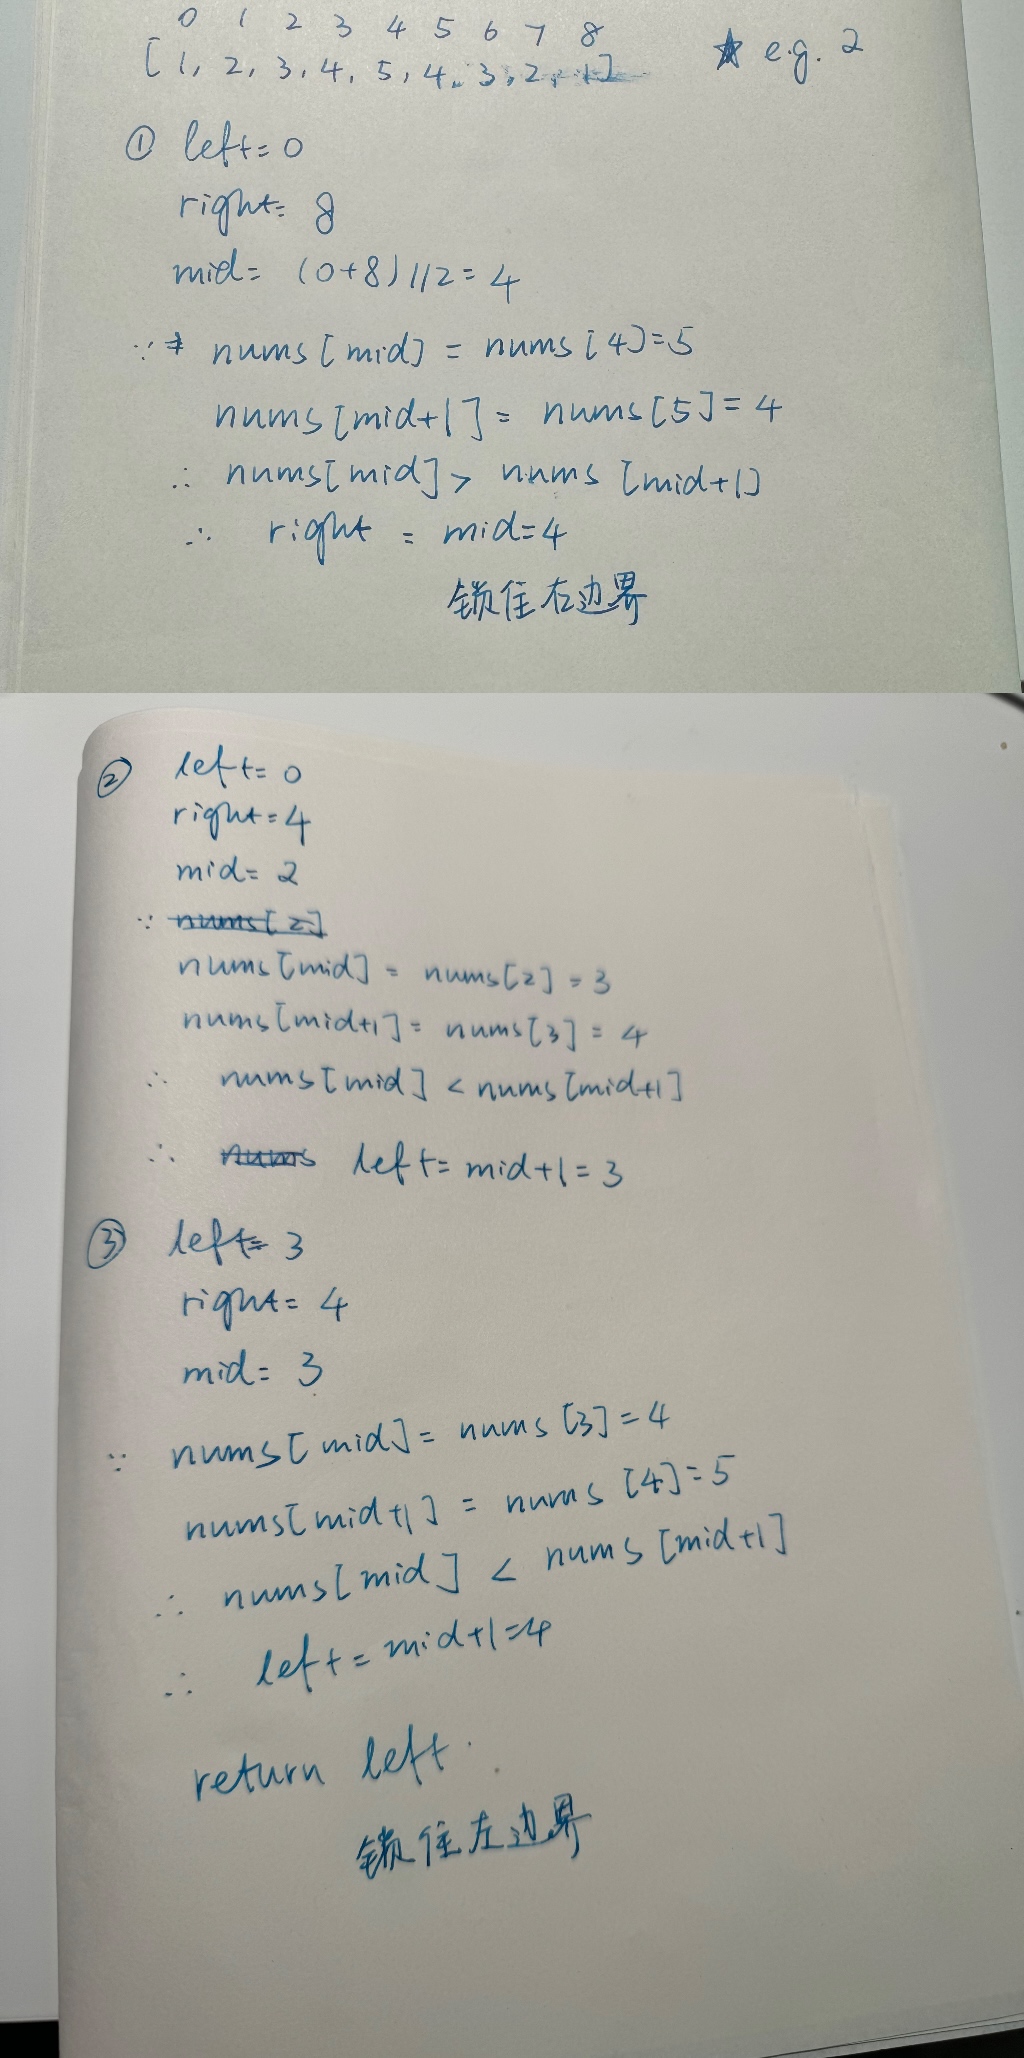 0 1 2 3 4 5 6 7 8
[1, 2, 3, 4, 5, 4, 3, 2, 1]
★ e.g. 2
① left=0
right=8
mid= (0+8)//2=4
∵ nums[mid] = nums[4]=5
nums[mid+1] = nums[5]=4
∴ nums[mid] > nums[mid+1]
∴ right = mid=4
锁住右边界
② left=0
right=4
mid=2
∵ nums[2]
nums[mid] = nums[2] = 3
nums[mid+1] = nums[3] = 4
∴ nums[mid] < nums[mid+1]
∴ nums left=mid+1=3
③ left=3
right=4
mid=3
∵ nums[mid] = nums[3]=4
nums[mid+1] = nums[4]=5
∴ nums[mid] < nums[mid+1]
∴ left=mid+1=4
return left.
锁住左边界